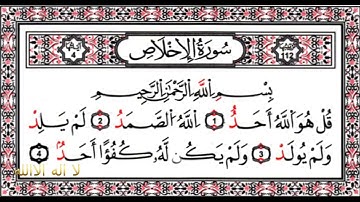 سُورَةُ الإِخْلَاصِ
بِسْمِ اللَّهِ الرَّحْمَٰنِ الرَّحِيمِ
قُلْ هُوَ اللَّهُ أَحَدٌ ١ اللَّهُ الصَّمَدُ ٢ لَمْ يَلِدْ
وَلَمْ يُولَدْ ٣ وَلَمْ يَكُن لَّهُ كُفُوًا أَحَدٌ ٤
لا اله الا الله